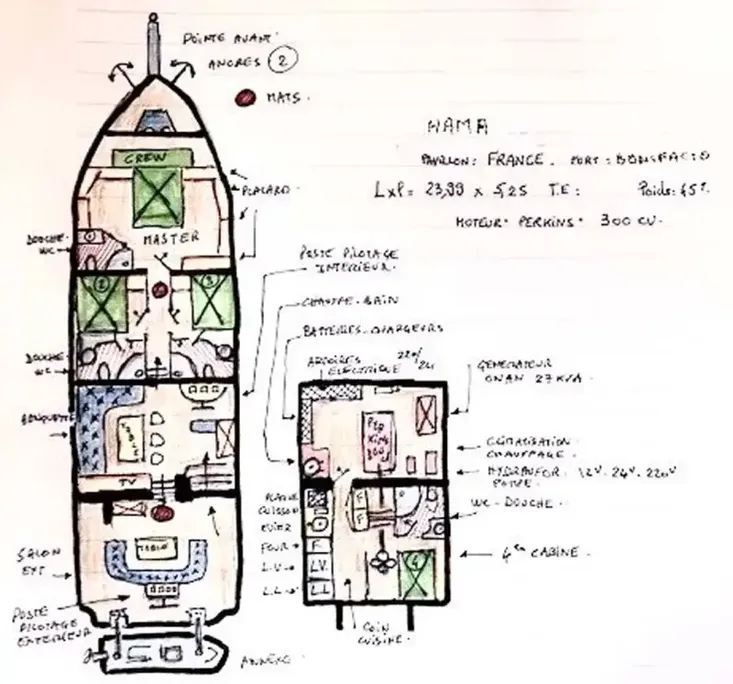 POINTE AVANT
ANCRES 2
MATS.
HAMA
PAVILLON: FRANCE. PORT: BONIFACIO
LxP= 23,99 x 5,25 T.E:
Poids: 45T.
MOTEUR: PERKINS: 300 CV.
CREW
PLACARD
MASTER
DOUCHE.
WC
POSTE PILOTAGE
INTERIEUR.
CHAUFFE-BAIN
BATTERIES-CHARGEURS
2
3
ARMOIRES
ELECTRIQUE
220/24
GENERATEUR
ONAN 27 KVA.
DOUCHE
WC
BANQUETTE
TABLE
PERKINS 300
CLIMATISATION
CHAUFFAGE.
HYDRAUFOR. 12V. 24V. 220V
POMPE
TV
PLAQUE
CUISSON
EVIER
F
F
WC-DOUCHE.
FOUR
F
L.V
LV
L.L
LL
4
4EME CABINE.
SALON
EXT
TABLE
POSTE
PILOTAGE
EXTERIEUR
COIN
CUISINE.
ANNEXE